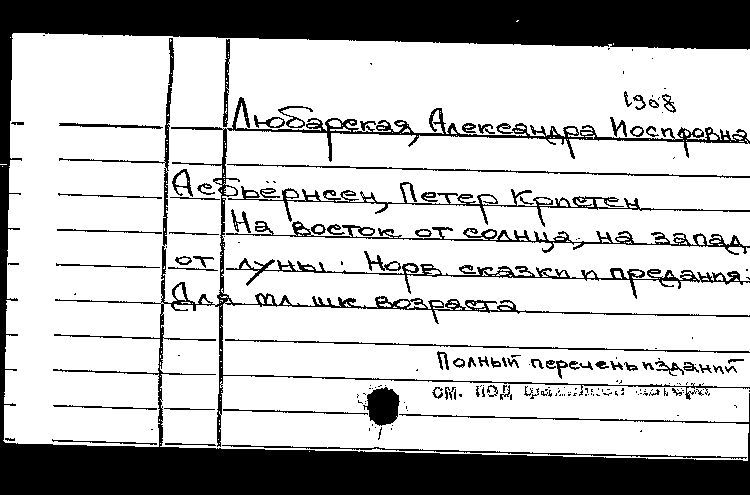 1908
Любарская, Александра Иосифовна
Асбьёрнсен, Петер Кристен
На восток от солнца, на запад
от луны: Норв. сказки и предания:
Для мл. шк. возраста
Полный перечень изданий
см. под фамилией автора